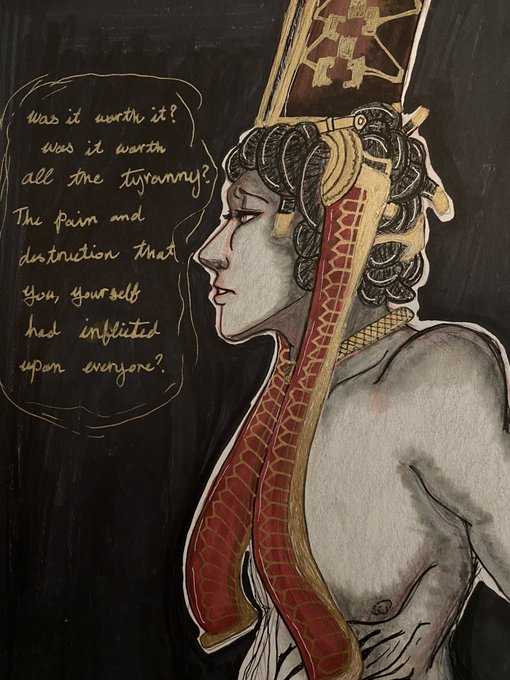 was it worth it?
was it worth
all the tyranny?
The pain and
destruction that
you, yourself
had inflicted
upon everyone?